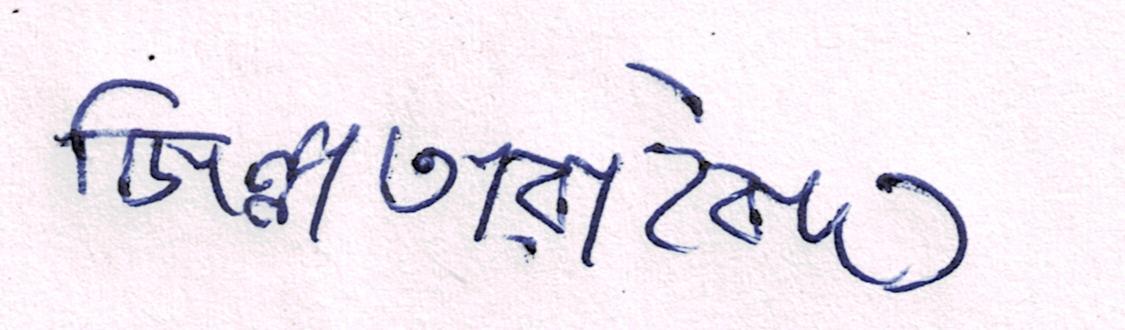 জিন্না তারা বৈদ্য